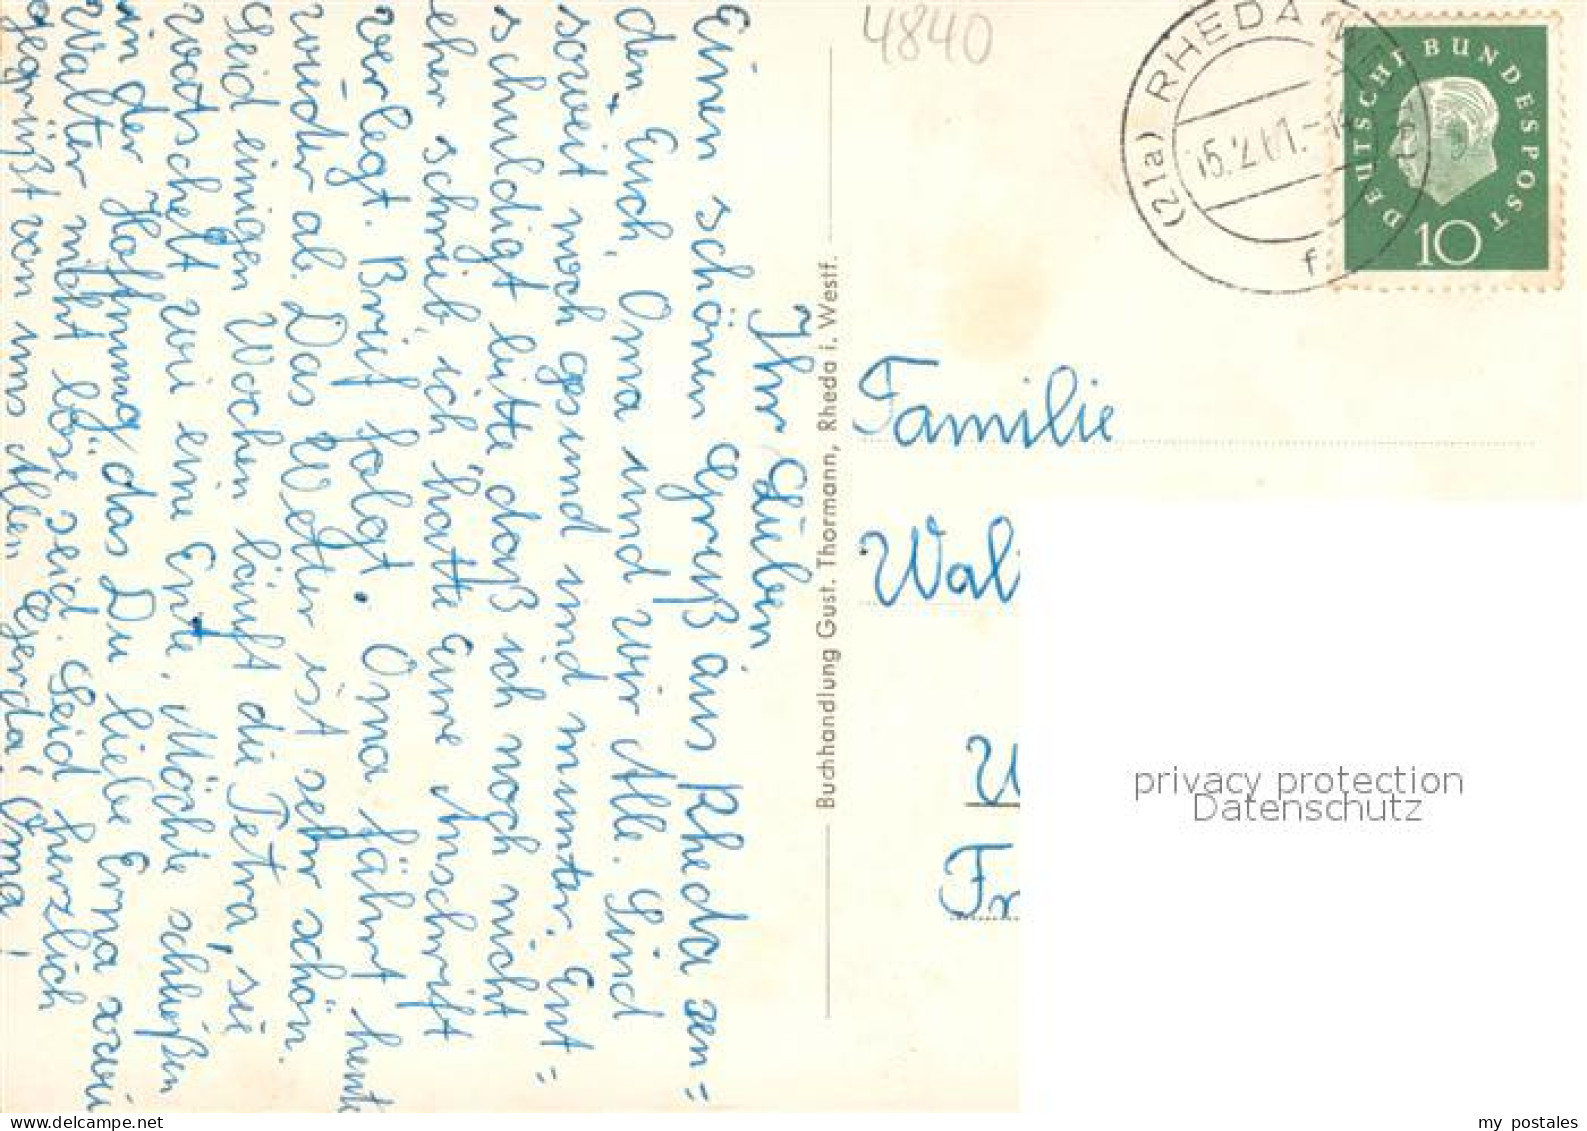 Ihr Lieben
Einen schönen Gruß aus Rheda sen=
den Euch, Oma und wir Alle. Sind
soweit noch gesund und munter. Ent=
schuldigt bitte daß ich noch nicht
eher schrieb, ich hatte Eure Anschrift
verlegt. Brief folgt. Oma fährt heute
wieder ab. Das Wetter ist sehr schön.
Seid einigen Wochen läuft die Petra, sie
watschelt wie eine Ente. Möchte schließen
in der Hoffnung, das Du liebe Erna
Walter nicht böse seid. Seid herzlich
gegrüßt von uns Allen Gerda, Oma!
Buchhandlung Gust. Thormann, Rheda i. Westf.
4840
(21a) RHEDA
15.2.61.-14
f
DEUTSCHE BUNDESPOST
10
Familie
privacy protection
Datenschutz
www.delcampe.net
my postales